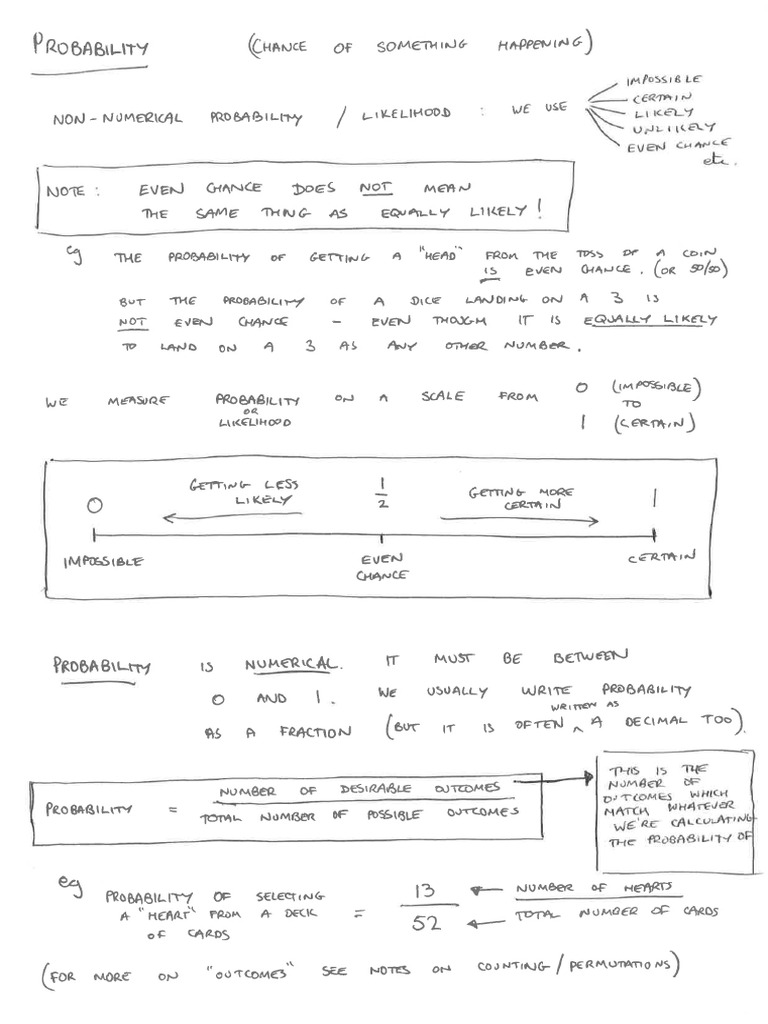 PROBABILITY (CHANCE OF SOMETHING HAPPENING)
NON-NUMERICAL PROBABILITY / LIKELIHOOD : WE USE
IMPOSSIBLE
CERTAIN
LIKELY
UNLIKELY
EVEN CHANCE
etc.
NOTE : EVEN CHANCE DOES NOT MEAN
THE SAME THING AS EQUALLY LIKELY!
eg THE PROBABILITY OF GETTING A "HEAD" FROM THE TOSS OF A COIN
IS EVEN CHANCE. (OR 50/50)
BUT THE PROBABILITY OF A DICE LANDING ON A 3 IS
NOT EVEN CHANCE - EVEN THOUGH IT IS EQUALLY LIKELY
TO LAND ON A 3 AS ANY OTHER NUMBER.
WE MEASURE PROBABILITY ON A SCALE FROM 0 (IMPOSSIBLE)
OR TO
LIKELIHOOD 1 (CERTAIN)
GETTING LESS
LIKELY
GETTING MORE
CERTAIN
0 1/2 1
IMPOSSIBLE EVEN CERTAIN
CHANCE
PROBABILITY IS NUMERICAL. IT MUST BE BETWEEN
0 AND 1. WE USUALLY WRITE PROBABILITY
AS A FRACTION (BUT IT IS OFTEN ^ WRITTEN AS A DECIMAL TOO).
PROBABILITY = NUMBER OF DESIRABLE OUTCOMES
TOTAL NUMBER OF POSSIBLE OUTCOMES
THIS IS THE
NUMBER OF
OUTCOMES WHICH
MATCH WHATEVER
WE'RE CALCULATING
THE PROBABILITY OF
eg PROBABILITY OF SELECTING
A "HEART" FROM A DECK
OF CARDS
= 13 NUMBER OF HEARTS
52 TOTAL NUMBER OF CARDS
(FOR MORE ON "OUTCOMES" SEE NOTES ON COUNTING/PERMUTATIONS)